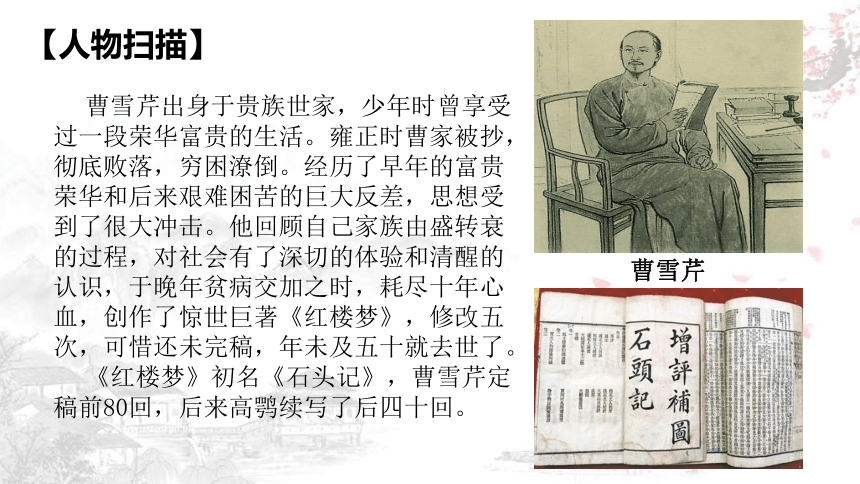 【人物扫描】
曹雪芹出身于贵族世家，少年时曾享受
过一段荣华富贵的生活。雍正时曹家被抄，
彻底败落，穷困潦倒。经历了早年的富贵
荣华和后来艰难困苦的巨大反差，思想受
到了很大冲击。他回顾自己家族由盛转衰
的过程，对社会有了深切的体验和清醒的
认识，于晚年贫病交加之时，耗尽十年心
血，创作了惊世巨著《红楼梦》，修改五
次，可惜还未完稿，年未及五十就去世了。
《红楼梦》初名《石头记》，曹雪芹定
稿前80回，后来高鹗续写了后四十回。
曹雪芹
增評補圖
石頭記